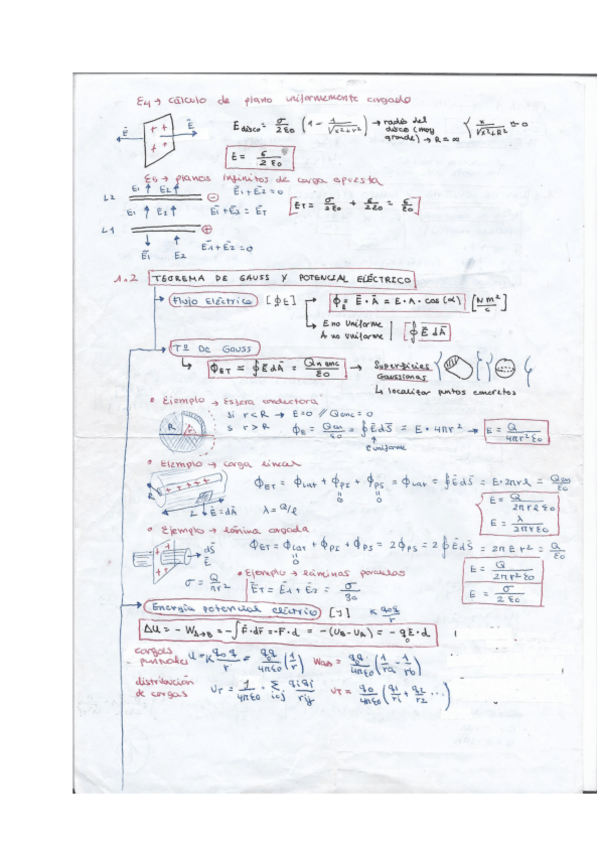 E4 → cálculo de plano uniformemente cargado
E disco = σ/2ε0 (1 - 1/√(x²+r²)) → radio del disco (muy grande) → R = ∞ { x/√(x²+R²) ≃ 0
E = σ/2ε0
E5 → planos infinitos de carga opuesta
E1 E2 E1 + E2 = 0
L2 ⊖
E1 E2 E1 + E2 = ET ET = σ/2ε0 + σ/2ε0 = σ/ε0
L1 ⊕
E1 E2 E1 + E2 = 0
1.2 TEOREMA DE GAUSS Y POTENCIAL ELÉCTRICO
Flujo Eléctrico [ΦE] → ΦE = E · A = E · A · cos(α) [N m²/C]
→ E no uniforme
A no uniforme ∮ E dA
Tª DE GAUSS
↳ ΦET = ∮ E dA = Qn enc/ε0 → Superficies Gaussianas
↳ localizar puntos concretos
• Ejemplo → Esfera conductora
R si r < R → E = 0 // Qenc = 0
s r > R ΦE = Qen/ε0 = ∮ E dS = E · 4πr² → E = Q/4πr²ε0
E uniforme
• Ejemplo → carga lineal
ΦET = ΦLAT + ΦPI + ΦPS = ΦLAT = ∮ E dS = E · 2πrl = Qen/ε0
0 0
L E = dA λ = Q/l
E = Q/2πrlε0
E = λ/2πrε0
• Ejemplo → lámina cargada
dS
E
ΦET = ΦLAT + ΦPI + ΦPS = 2ΦPS = 2∮ E dS = 2π E r² = Q/ε0
0
• Ejemplo → láminas paralelas
E = Q/2πr²ε0
σ = Q/πr² ET = E1 + E2 = σ/ε0
E = σ/2ε0
Energía potencial eléctrica [J] K q0q/r
ΔU = - WA→B = -∫ F · dr = -F · d = -(UB - UA) = -qE · d
cargas puntuales U = K q0 q/r = q0q/4πε0 (1/r) Wab = q0q/4πε0 (1/ra - 1/rb)
distribución de cargas UT = 1/4πε0 · Σ i<j qiqj/rij UT = q0/4πε0 (q1/r1 + q2/r2 ...)